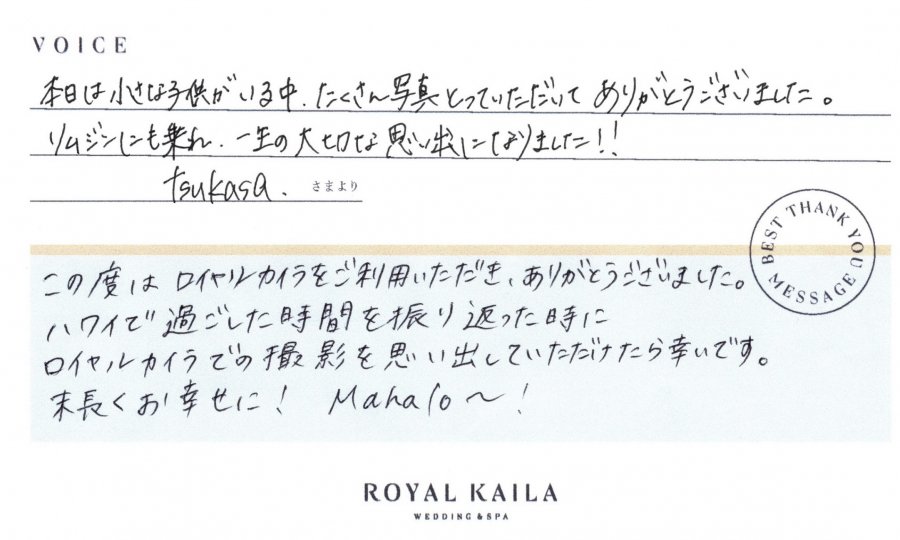 VOICE
本日は小さな子供がいる中、たくさん写真とっていただいてありがとうございました。
リムジンにも乗れ、一生の大切な思い出になりました!!
tsukasa. さまより
BEST THANK YOU MESSAGE
この度はロイヤルカイラをご利用いただき、ありがとうございました。
ハワイで過ごした時間を振り返った時に
ロイヤルカイラでの撮影を思い出していただけたら幸いです。
末長くお幸せに! Mahalo〜!
ROYAL KAILA
WEDDING & SPA